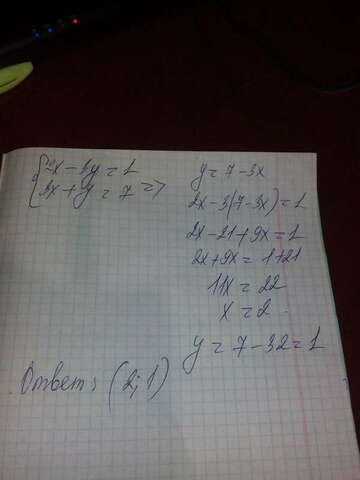 {2x - 3y = 1
3x + y = 7 =>
y = 7 - 3x
2x - 3(7 - 3x) = 1
2x - 21 + 9x = 1
2x + 9x = 1 + 21
11x = 22
x = 2.
y = 7 - 32 = 1
Ответ: (2; 1)